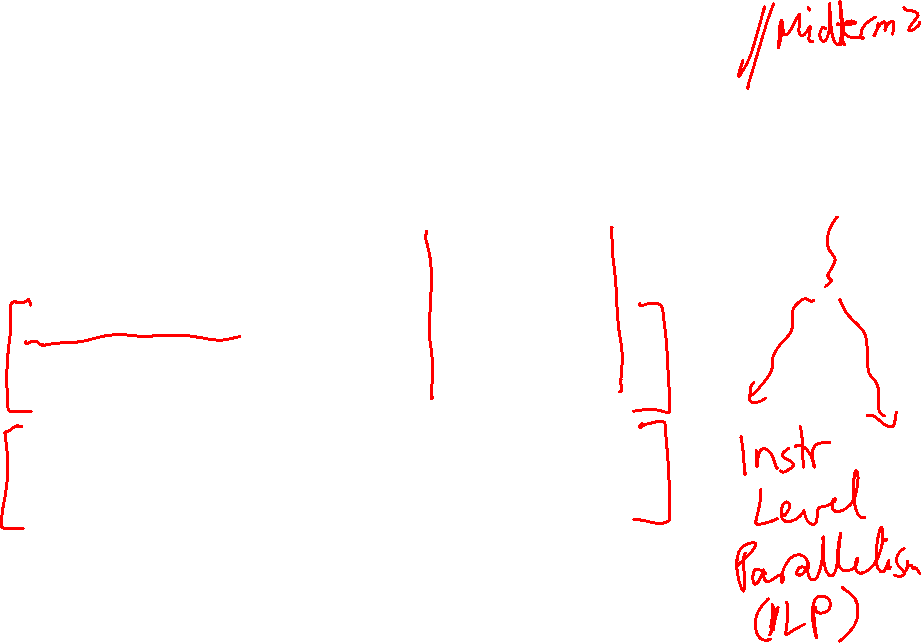 // Midterm 2
Instr
Level
Parallelism
(ILP)